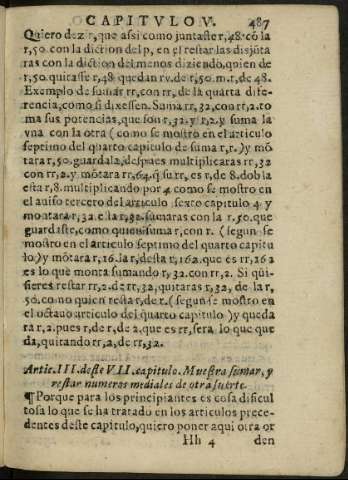 CAPITVLO V. 487
Quiero dezir, que assi como juntaste r, 48. cõ la
r, 50. con la diction del p, en el restar las disjũta
ras con la diction del menos diziendo, quien de
r, 50. quitasse r, 48. quedan rv. de r, 50. m. r, de 48.
Exemplo de sumar rr, con rr, de la quarta dife
rencia, como si dixessen. Suma rr, 32, con rr, 2. to
ma sus potencias, que son r, 32. y r, 2. y suma la
vna con la otra (como se mostro en el articulo
septimo del quarto capitulo de suma r, r.) y mõ
tara r, 50. guardala, despues multiplicaras rr, 32
con rr, 2. y mõtara rr, 64. q̃ su rr, es r, de 8. dobla
esta r, 8. multiplicando por 4 como se mostro en
el auiso tercero del articulo sexto capitulo 4 y
montara r, 32. esta r, 32. sumaras con la r. 50. que
guardaste, como quien suma r, con r. (segun se
mostro en el articulo septimo del quarto capitu
lo) y mõtara r, 16. la r, desta r, 162. que es rr, 162
es lo que monta sumando r, 32. con rr, 2. Si qui
sieres restar rr, 2. de rr, 32, quitaras r, 32, de la r,
50. como quien resta r, de r. (segun se mostro en
el octauo articulo del quarto capitulo) y queda
ra r, 2. pues r, de r, de 2. que es rr, sera lo que que
da, quitando rr, 2, de rr, 32.
Artic. III. deste VII. capitulo. Muestra sumar, y
restar numeros mediales de otra suerte.
¶ Porque para los principiantes es cosa dificul
tosa lo que se ha tratado en los articulos prece-
dentes deste capitulo, quiero poner aqui otra or
Hh 4 den